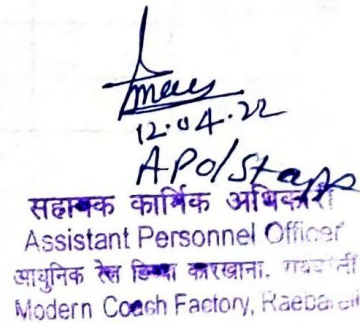 12.04.22
APO/Staff
सहायक कार्मिक अधिकारी
Assistant Personnel Officer
आधुनिक रेल डिब्बा कारखाना, रायबरेली
Modern Coach Factory, Raebareli